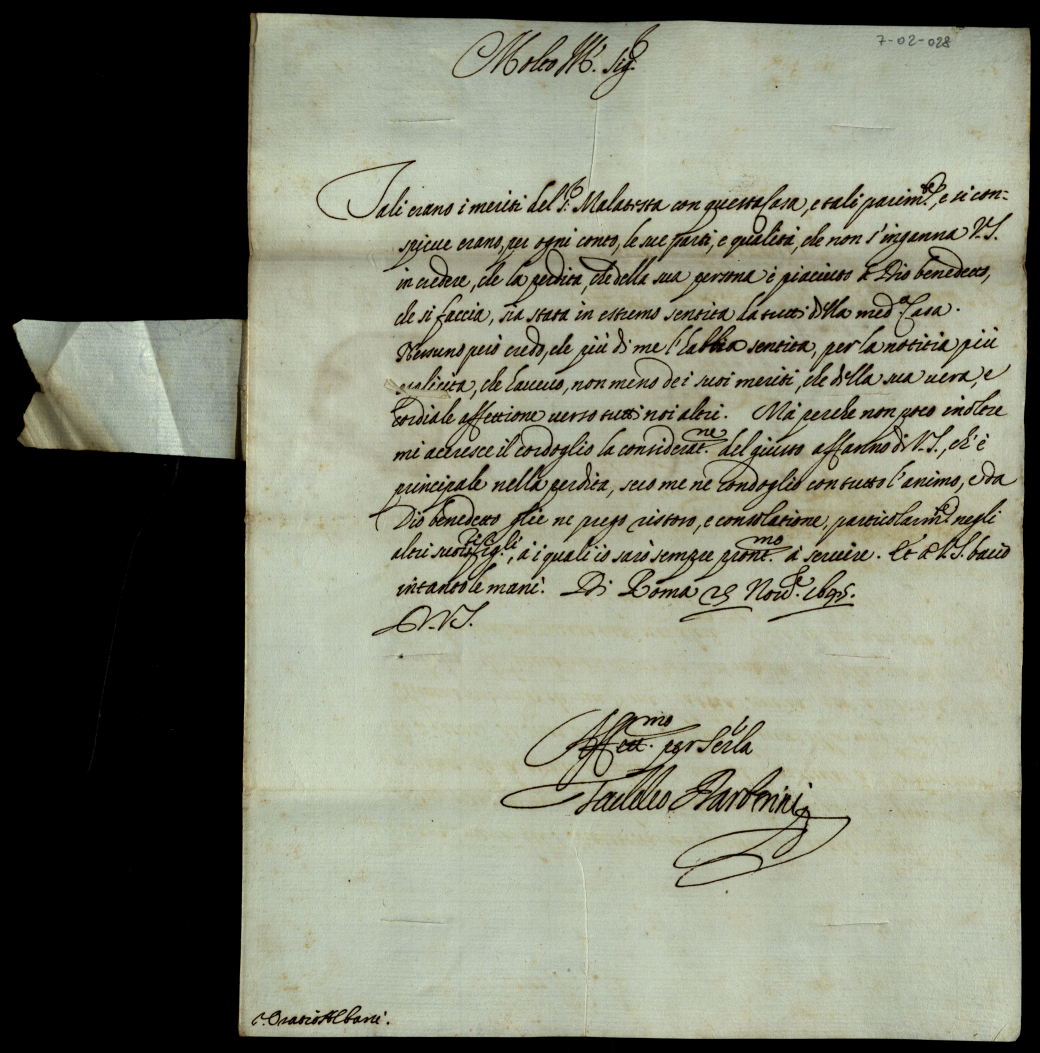 7-02-028
Molto Ill.re Sig.re
Tali erano i meriti del S.r Malatesta con questa Casa, e tali parim.te, e si con-
spicue erano, per ogni conto, le sue parti, e qualità, che non s'inganna V.S.
in credere, che la perdita, che della sua persona è piaciuto à Dio benedetto,
che si faccia, sia stata in estremo sentita da tutti della med.a Casa.
Nessuno però credo, che più di me l'habbia sentita, per la notitia più
che havevo, non meno dei suoi meriti, che della sua vera, e
cordiale affettione verso tutti noi altri. Mà perche non poco inoltre
mi accresce il cordoglio la considerat.ne del giusto affanno di V.S., ch'è
principale nella perdita, seco me ne condoglio con tutto l'animo, e da
Dio benedetto glie ne prego ristoro, e consolatione, particolarm.te negli
altri suoi figli, à i quali io sarò sempre pront.mo à servire. Et à V.S. bacio
intanto le mani. Di Roma 29 Nov.re
D. V.S.
Affett.mo per ser.la
Taddeo Barberini
S. Oratio Albani.